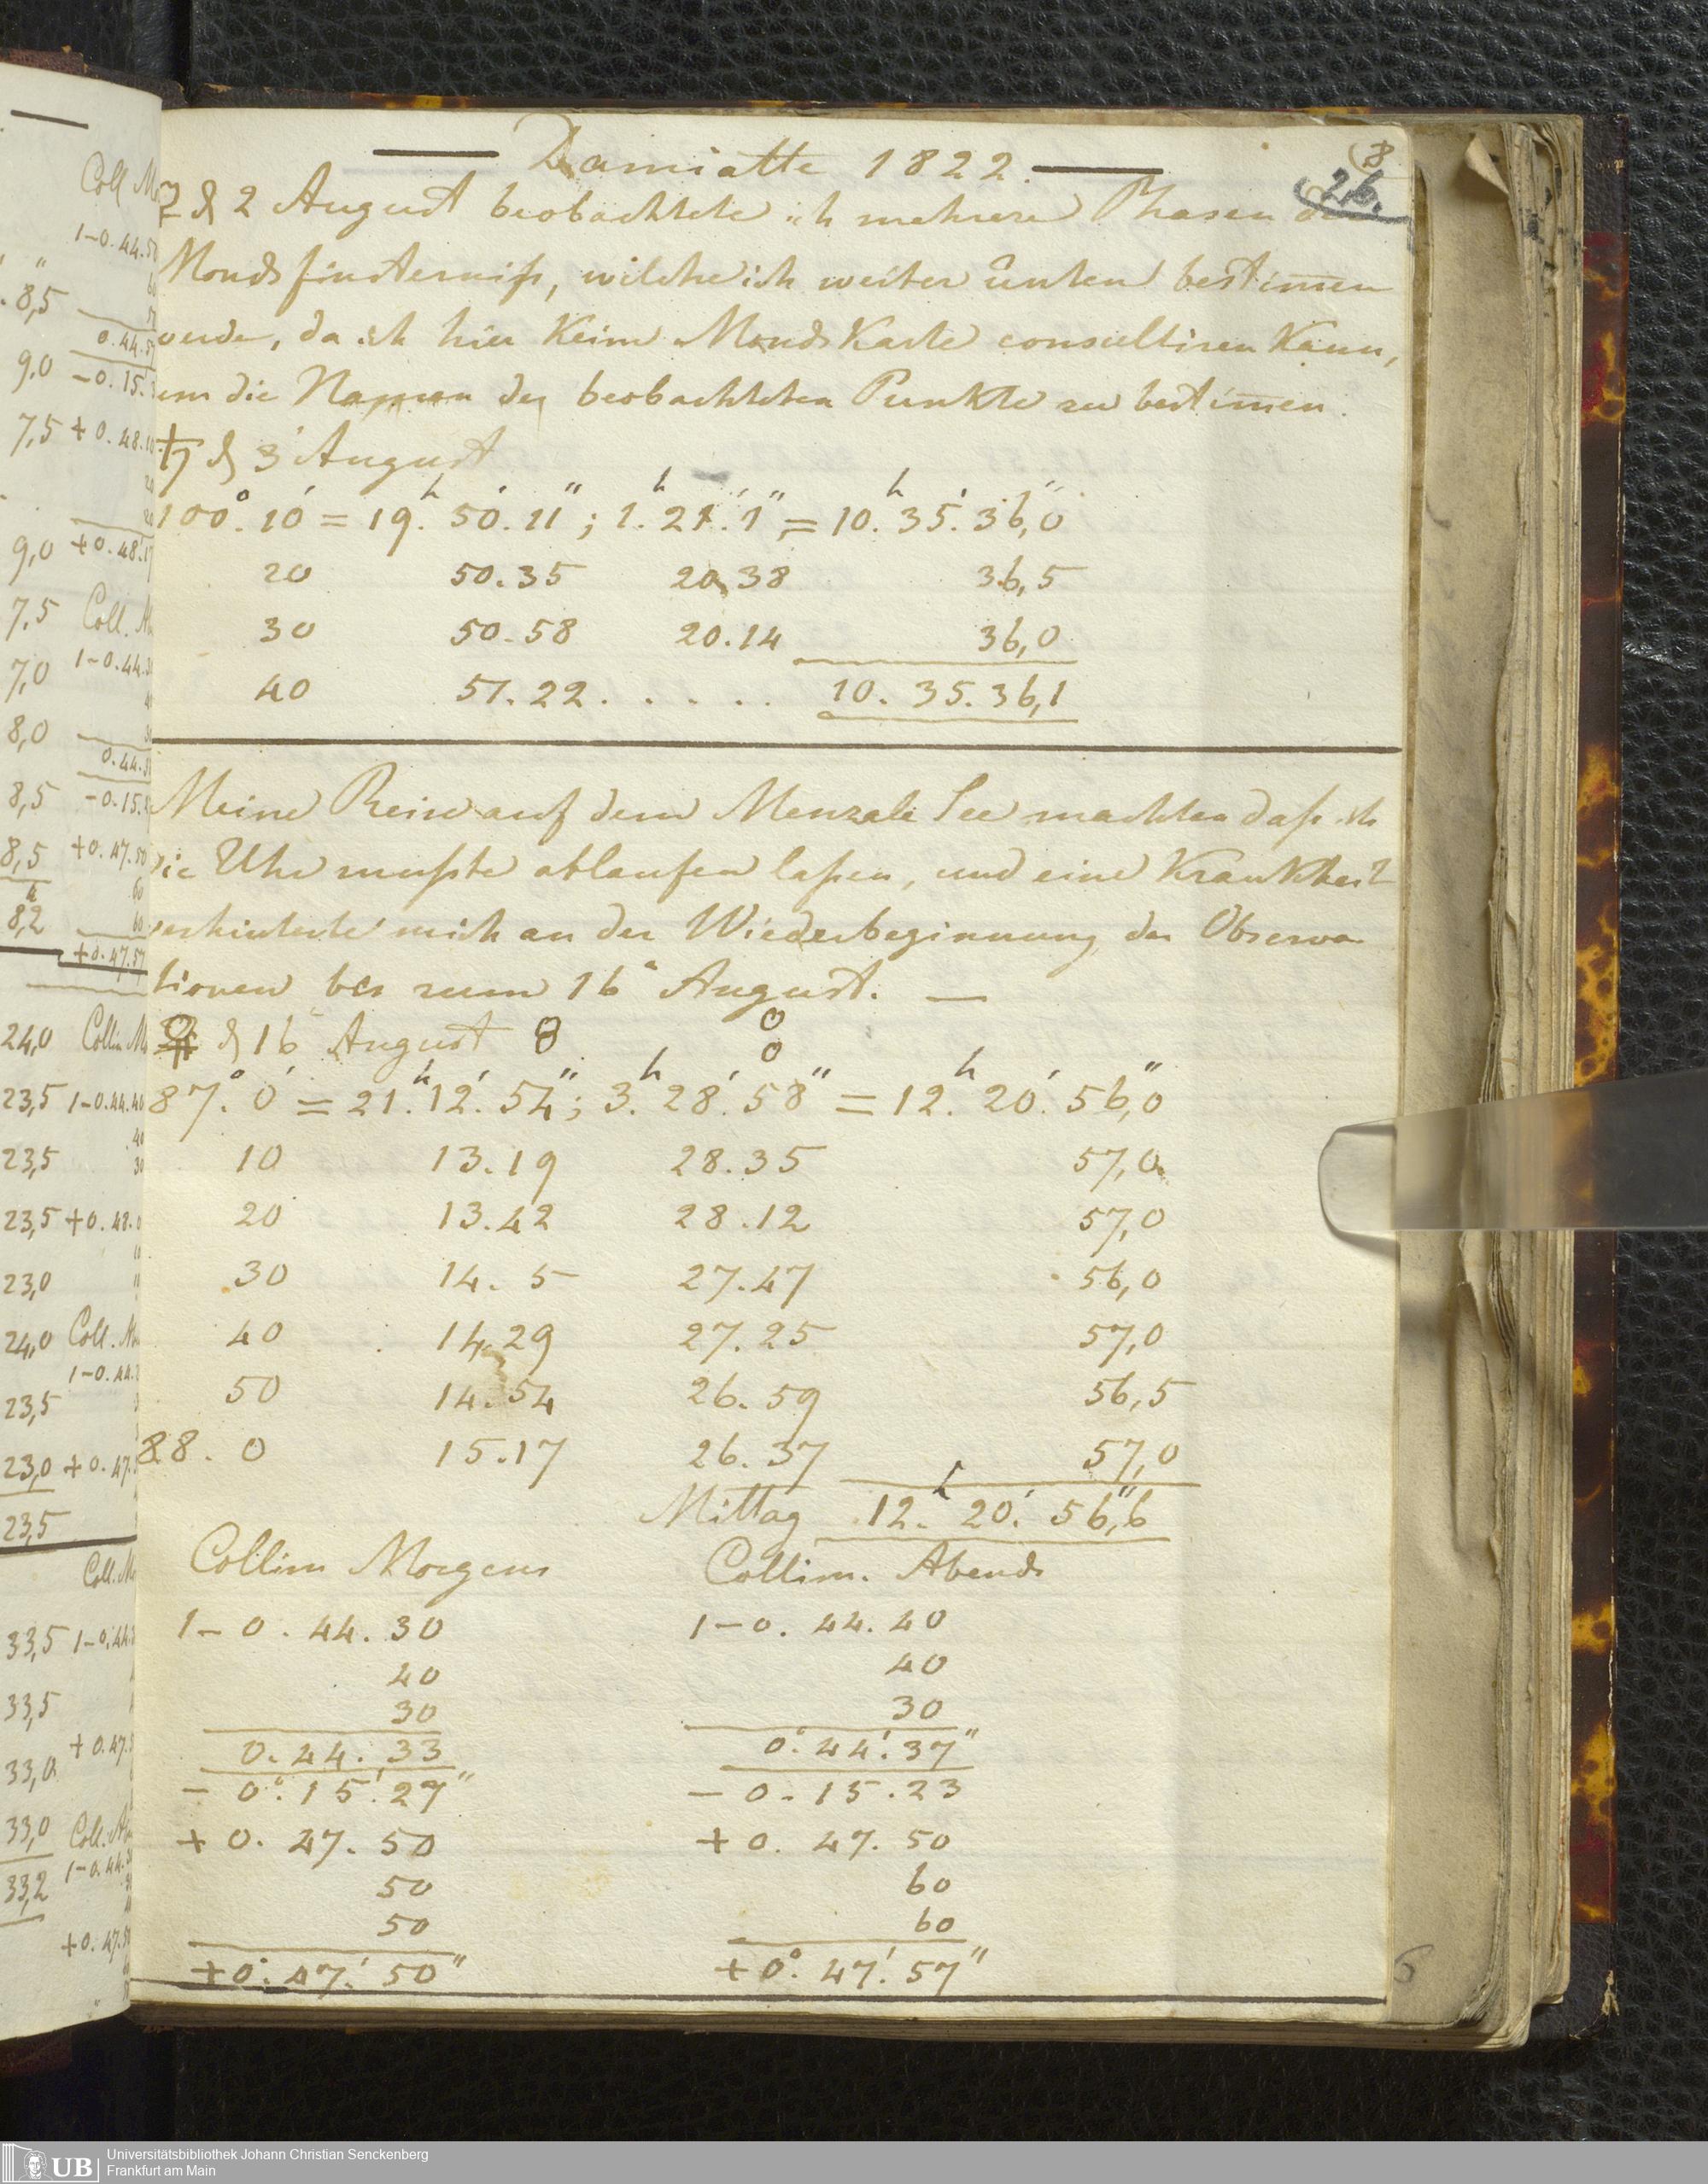 — Damiatte 1822. —
8
26.
♀ d 2 August beobachtete ich mehrere Phasen der
Mondsfinsterniß, welche ich weiter unten bestimen
werde, da ich hier keine Mondskarte consultiren kann,
um die Namen der beobachteten Punkte zu bestimen.
♄ d 3 August
100°. 10' = 19.h 50.' 11"; 1.h 21.' 1" = 10.h 35.' 36,"0
20 50.35 20.38 36,5
30 50.58 20.14 36,0
40 51.22. . . . . 10. 35. 36,1
Meine Reise auf dem Menzale See machten daß ich
die Uhr mußte ablaufen laßen, und eine Krankheit
verhinterte mich an der Wiederbeginnung der Observa
tionen bis zum 16 August. —
♀ d 16 August 8 0
0
87.° 0' = 21.h 12.' 54"; 3.h 28.' 58" = 12.h 20.' 56,"0
10 13.19 28.35 57,0
20 13.42 28.12 57,0
30 14. 5 27.47 56,0
40 14.29 27.25 57,0
50 14.54 26.59 56,5
88. 0 15.17 26.37 57,0
Mittag 12.h 20.' 56,"6
Collim Morgens Collim. Abends
1-0. 44. 30 1-0. 44. 40
40 40
30 30
0. 44. 33 0.° 44.' 37"
- 0.° 15.' 27" - 0. 15. 23
+ 0. 47. 50 + 0. 47. 50
50 60
50 60
+0.° 47.' 50" +0.° 47.' 57"
8,5
9,0
7,5
9,0
7,5
7,0
8,0
8,5
8,5
8,2
24,0
23,5
23,5
23,5
23,0
24,0
23,5
23,0
23,5
33,5
33,5
33,0
33,0
33,2
6
UB
Universitätsbibliothek Johann Christian Senckenberg
Frankfurt am Main